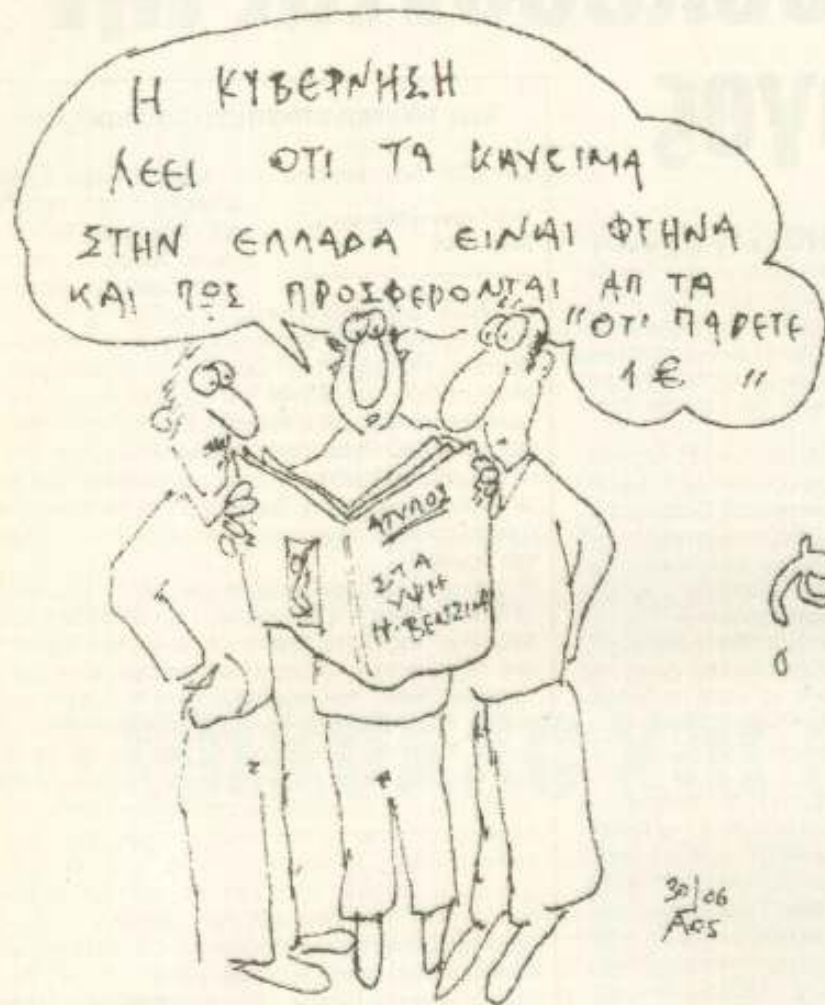 Η ΚΥΒΕΡΝΗΣΗ
ΛΕΕΙ ΟΤΙ ΤΑ ΚΑΥΣΙΜΑ
ΣΤΗΝ ΕΛΛΑΔΑ ΕΙΝΑΙ ΦΤΗΝΑ
ΚΑΙ ΠΩΣ ΠΡΟΣΦΕΡΟΝΤΑΙ ΑΠ ΤΑ
"ΟΤΙ ΠΑΡΕΤΕ
1 € "
ΑΤΥΠΟΣ
ΣΤΑ
ΥΨΗ
Η ΒΕΝΖΙΝΑ
30/06